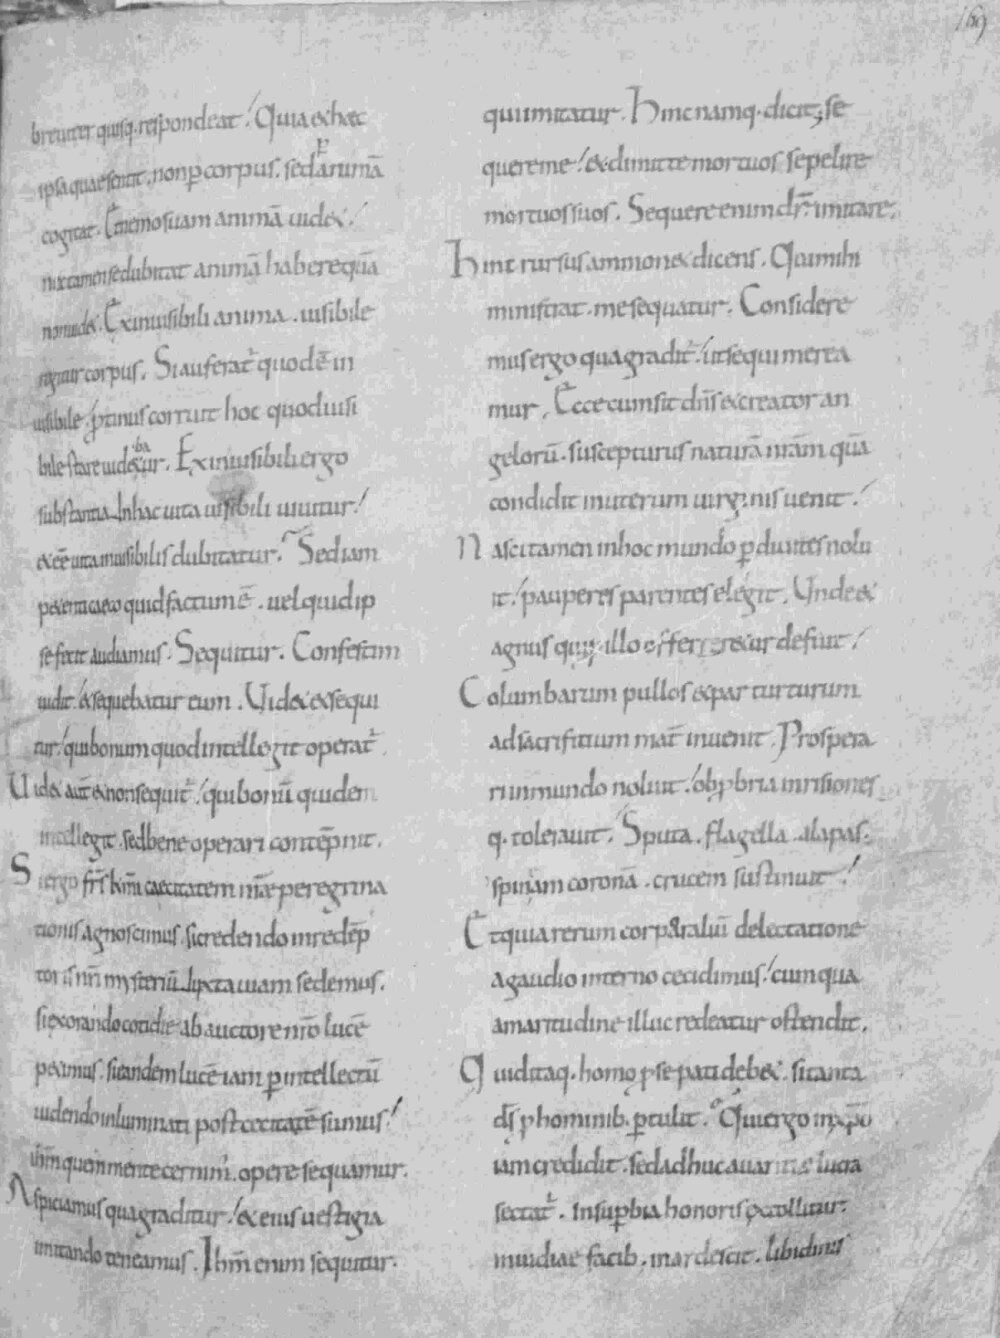 169
breuiter quisq. respondeat. Quia ex hac
ipsa quae sentit. non p corpus. sed p animā
cogitat. Et nemo suam animā uidet.
nec tamen se dubitat animā habere quā
non uidet. Ex inuisibili anima. uisibile
regitur corpus. Si auferat̄ quod ē in
uisibile. ptinus corruit hoc quod uisi
bile stare uidebatur. Ex inuisibili ergo
substantia. In hac uita uisibili uiuitur.
& eē uita inuisibilis dubitatur. Sed iam
petenti caeco quid factum ē. uel quid ip
se fecit audiamus. Sequitur. Confestim
uidit. & sequebatur eum. Uidet & sequi
tur. qui bonum quod intellegit operat̄.
Uidet aut̄ & non sequit̄. qui bonū quidem
intellegit. sed bene operari contēpnit.
Si ergo fr̄s km̄i caecitatem nr̄ae peregrina
tionis agnoscimus. si credendo in redēp
toris nr̄i mysteriū. Iuxta uiam sedemus.
si exorando cotidie ab auctore nr̄o lucē
petimus. si eandem lucē iam p intellectū
uidendo inluminati post cecitatē sumus.
ihm̄ quem mente cernim̄. opere sequamur.
Aspiciamus qua graditur. & eius uestigia
imitando teneamus. Ihm̄ enim sequitur.
qui imitatur. Hinc namq. dicit; se
quere me. & dimitte mortuos sepelire
mortuos suos. Sequere enim dr̄. imitare.
Hinc rursus ammonet dicens. Qui mihi
ministrat. me sequatur. Considere
mus ergo qua gradit̄. ut sequi merea
mur. Ecce cum sit dn̄s & creator an
gelorū. suscepturus naturā nr̄am quā
condidit in uterum uirginis uenit.
Nasci tamen in hoc mundo p diuites nolu
it. pauperes parentes elegit. Unde &
agnus qui p illo offerretur defuit.
Columbarum pullos & par turturum
ad sacrifitium mat̄ inuenit. Prospera
ri in mundo noluit. obpbria inrisiones
q. tolerauit. Sputa. flagella. alapas.
spineam coronā. crucem sustinuit.
Et quia rerum corporaliū delectatione
a gaudio interno cecidimus. cum qua
amaritudine illuc redeatur ostendit.
Quid itaq. homo p se pati debet. si tanta
ds̄ p hominib. ptulit. Qui ergo in xp̄o
iam credidit. sed adhuc auaritiae lucra
sectat̄. In supbia honoris extollitur.
inuidiae facib. inardescit. libidinis